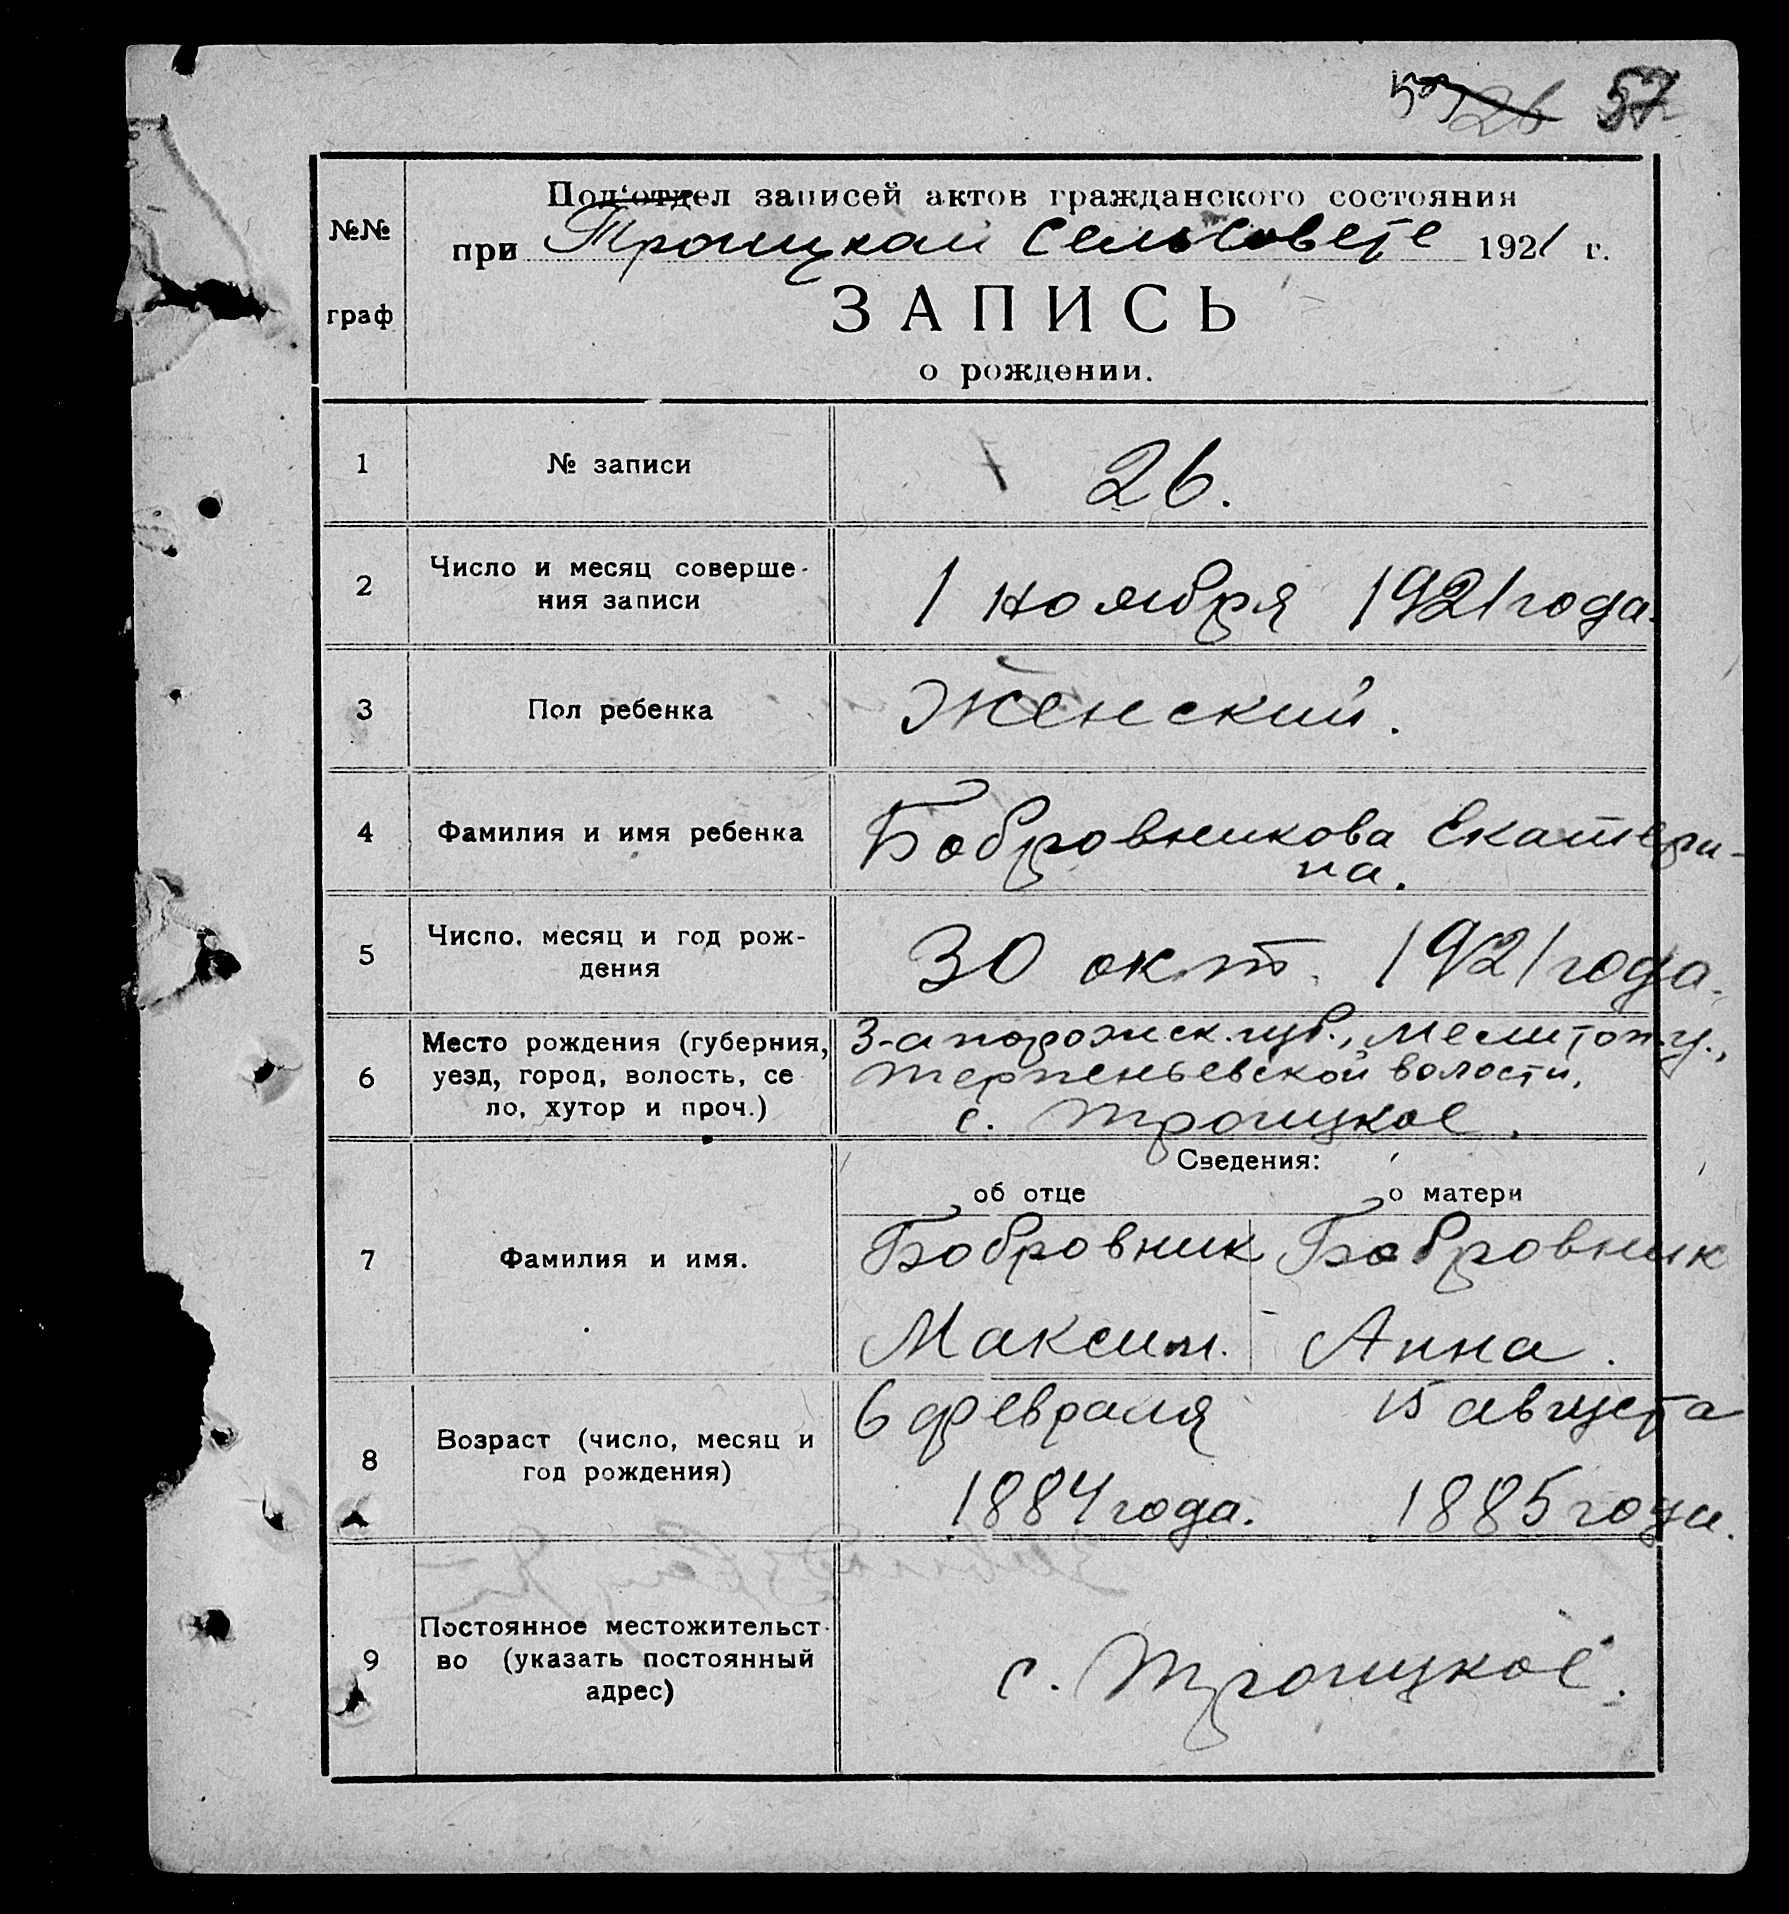 26 57
Под'отдел записей актов гражданского состояния
№№
при Троицком сельсовете 1921 г.
граф
ЗАПИСЬ
о рождении.
1 № записи 26.
2 Число и месяц соверше-
ния записи 1 ноября 1921 года.
3 Пол ребенка Женский.
4 Фамилия и имя ребенка Бобровникова Екатери-
на.
5 Число, месяц и год рож-
дения 30 окт. 1921 года.
6 Место рождения (губерния, Запорожск. губ., Мелитоп. у.,
уезд, город, волость, се Терпеньевской волости,
ло, хутор и проч.) с. Троицкое.
Сведения:
об отце о матери
7 Фамилия и имя. Бобровник Бобровник
Максим. Анна.
8 Возраст (число, месяц и 6 февраля 15 августа
год рождения) 1884 года. 1885 года.
9 Постоянное местожительст-
во (указать постоянный с. Троицкое.
адрес)